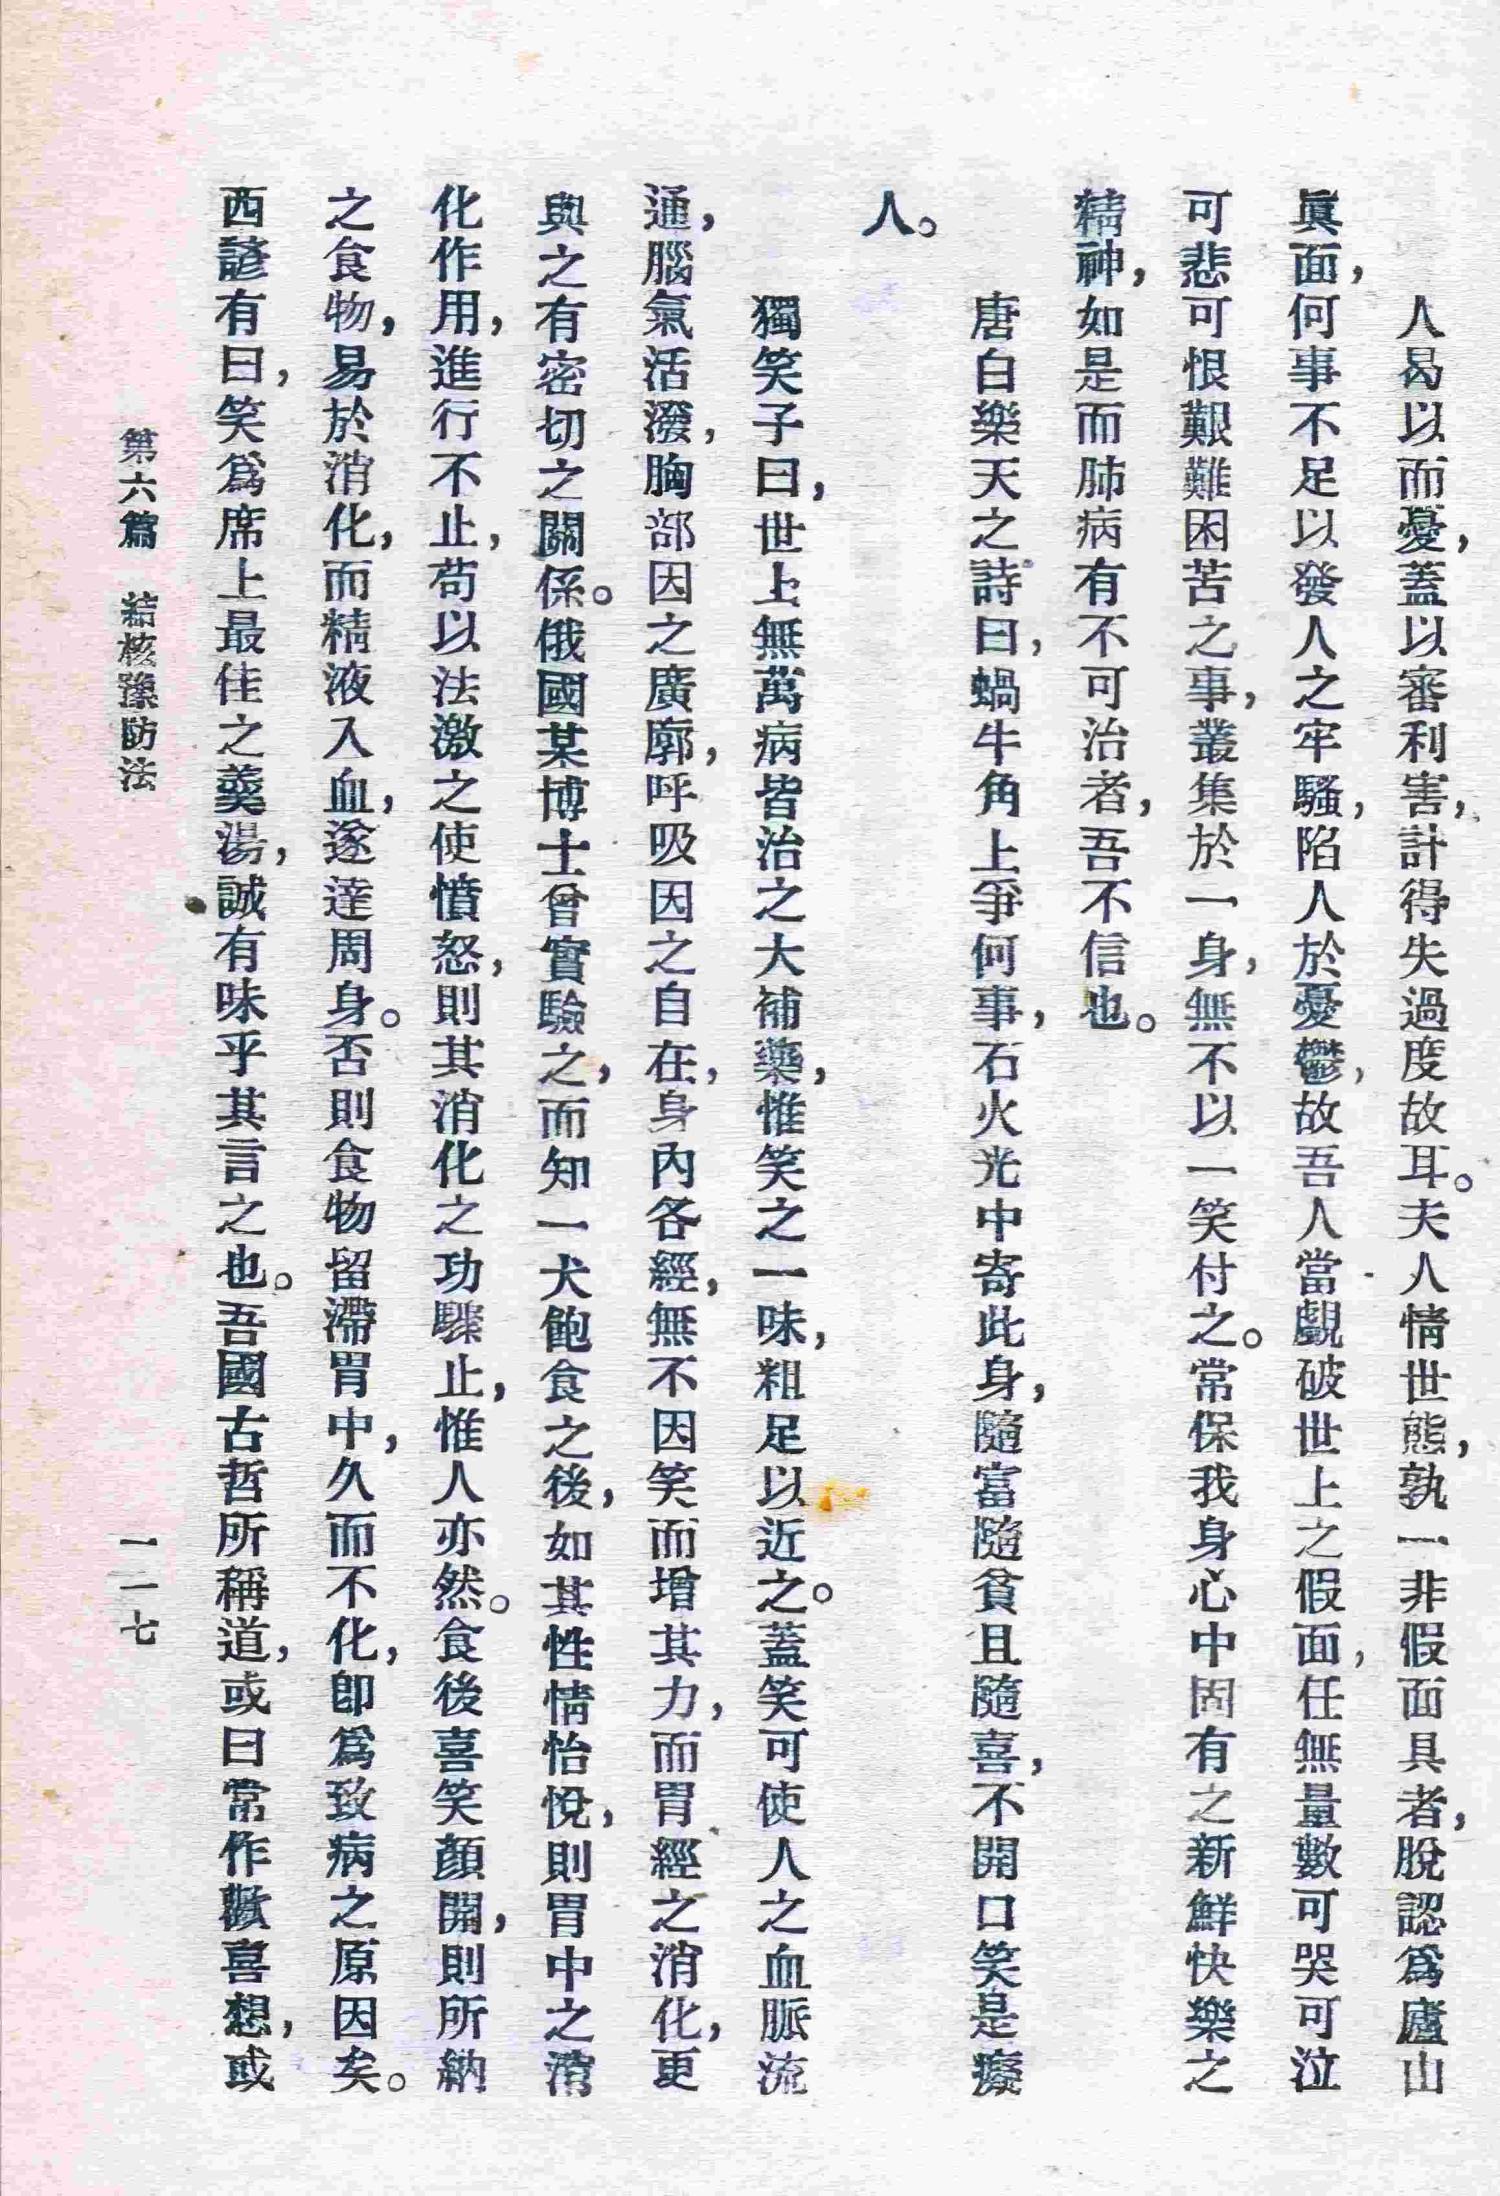 人曷以而憂，蓋以審利害，計得失過度故耳。夫人情世態，孰一非假面具者，脫認爲廬山
眞面，何事不足以發人之牢騷，陷人於憂鬱，故吾人當覷破世上之假面，任無量數可哭可泣
可悲可恨艱難困苦之事，叢集於一身，無不以一笑付之。常保我身心中固有之新鮮快樂之
精神，如是而肺病有不可治者，吾不信也。
唐白樂天之詩曰，蝸牛角上爭何事，石火光中寄此身，隨富隨貧且隨喜，不開口笑是癡
人。
獨笑子曰，世上無萬病皆治之大補藥，惟笑之一味，粗足以近之。蓋笑可使人之血脈流
通，腦氣活潑，胸部因之廣廓，呼吸因之自在，身內各經，無不因笑而增其力，而胃經之消化，更
與之有密切之關係。俄國某博士曾實驗之，而知一犬飽食之後，如其性情怡悅，則胃中之消
化作用，進行不止，苟以法激之使憤怒，則其消化之功驟止，惟人亦然。食後喜笑顏開，則所納
之食物，易於消化，而精液入血，遂達周身。否則食物留滯胃中，久而不化，卽爲致病之原因矣。
西諺有曰，笑爲席上最佳之羹湯，誠有味乎其言之也。吾國古哲所稱道，或曰常作歡喜想，或
第六篇　結核豫防法　一一七